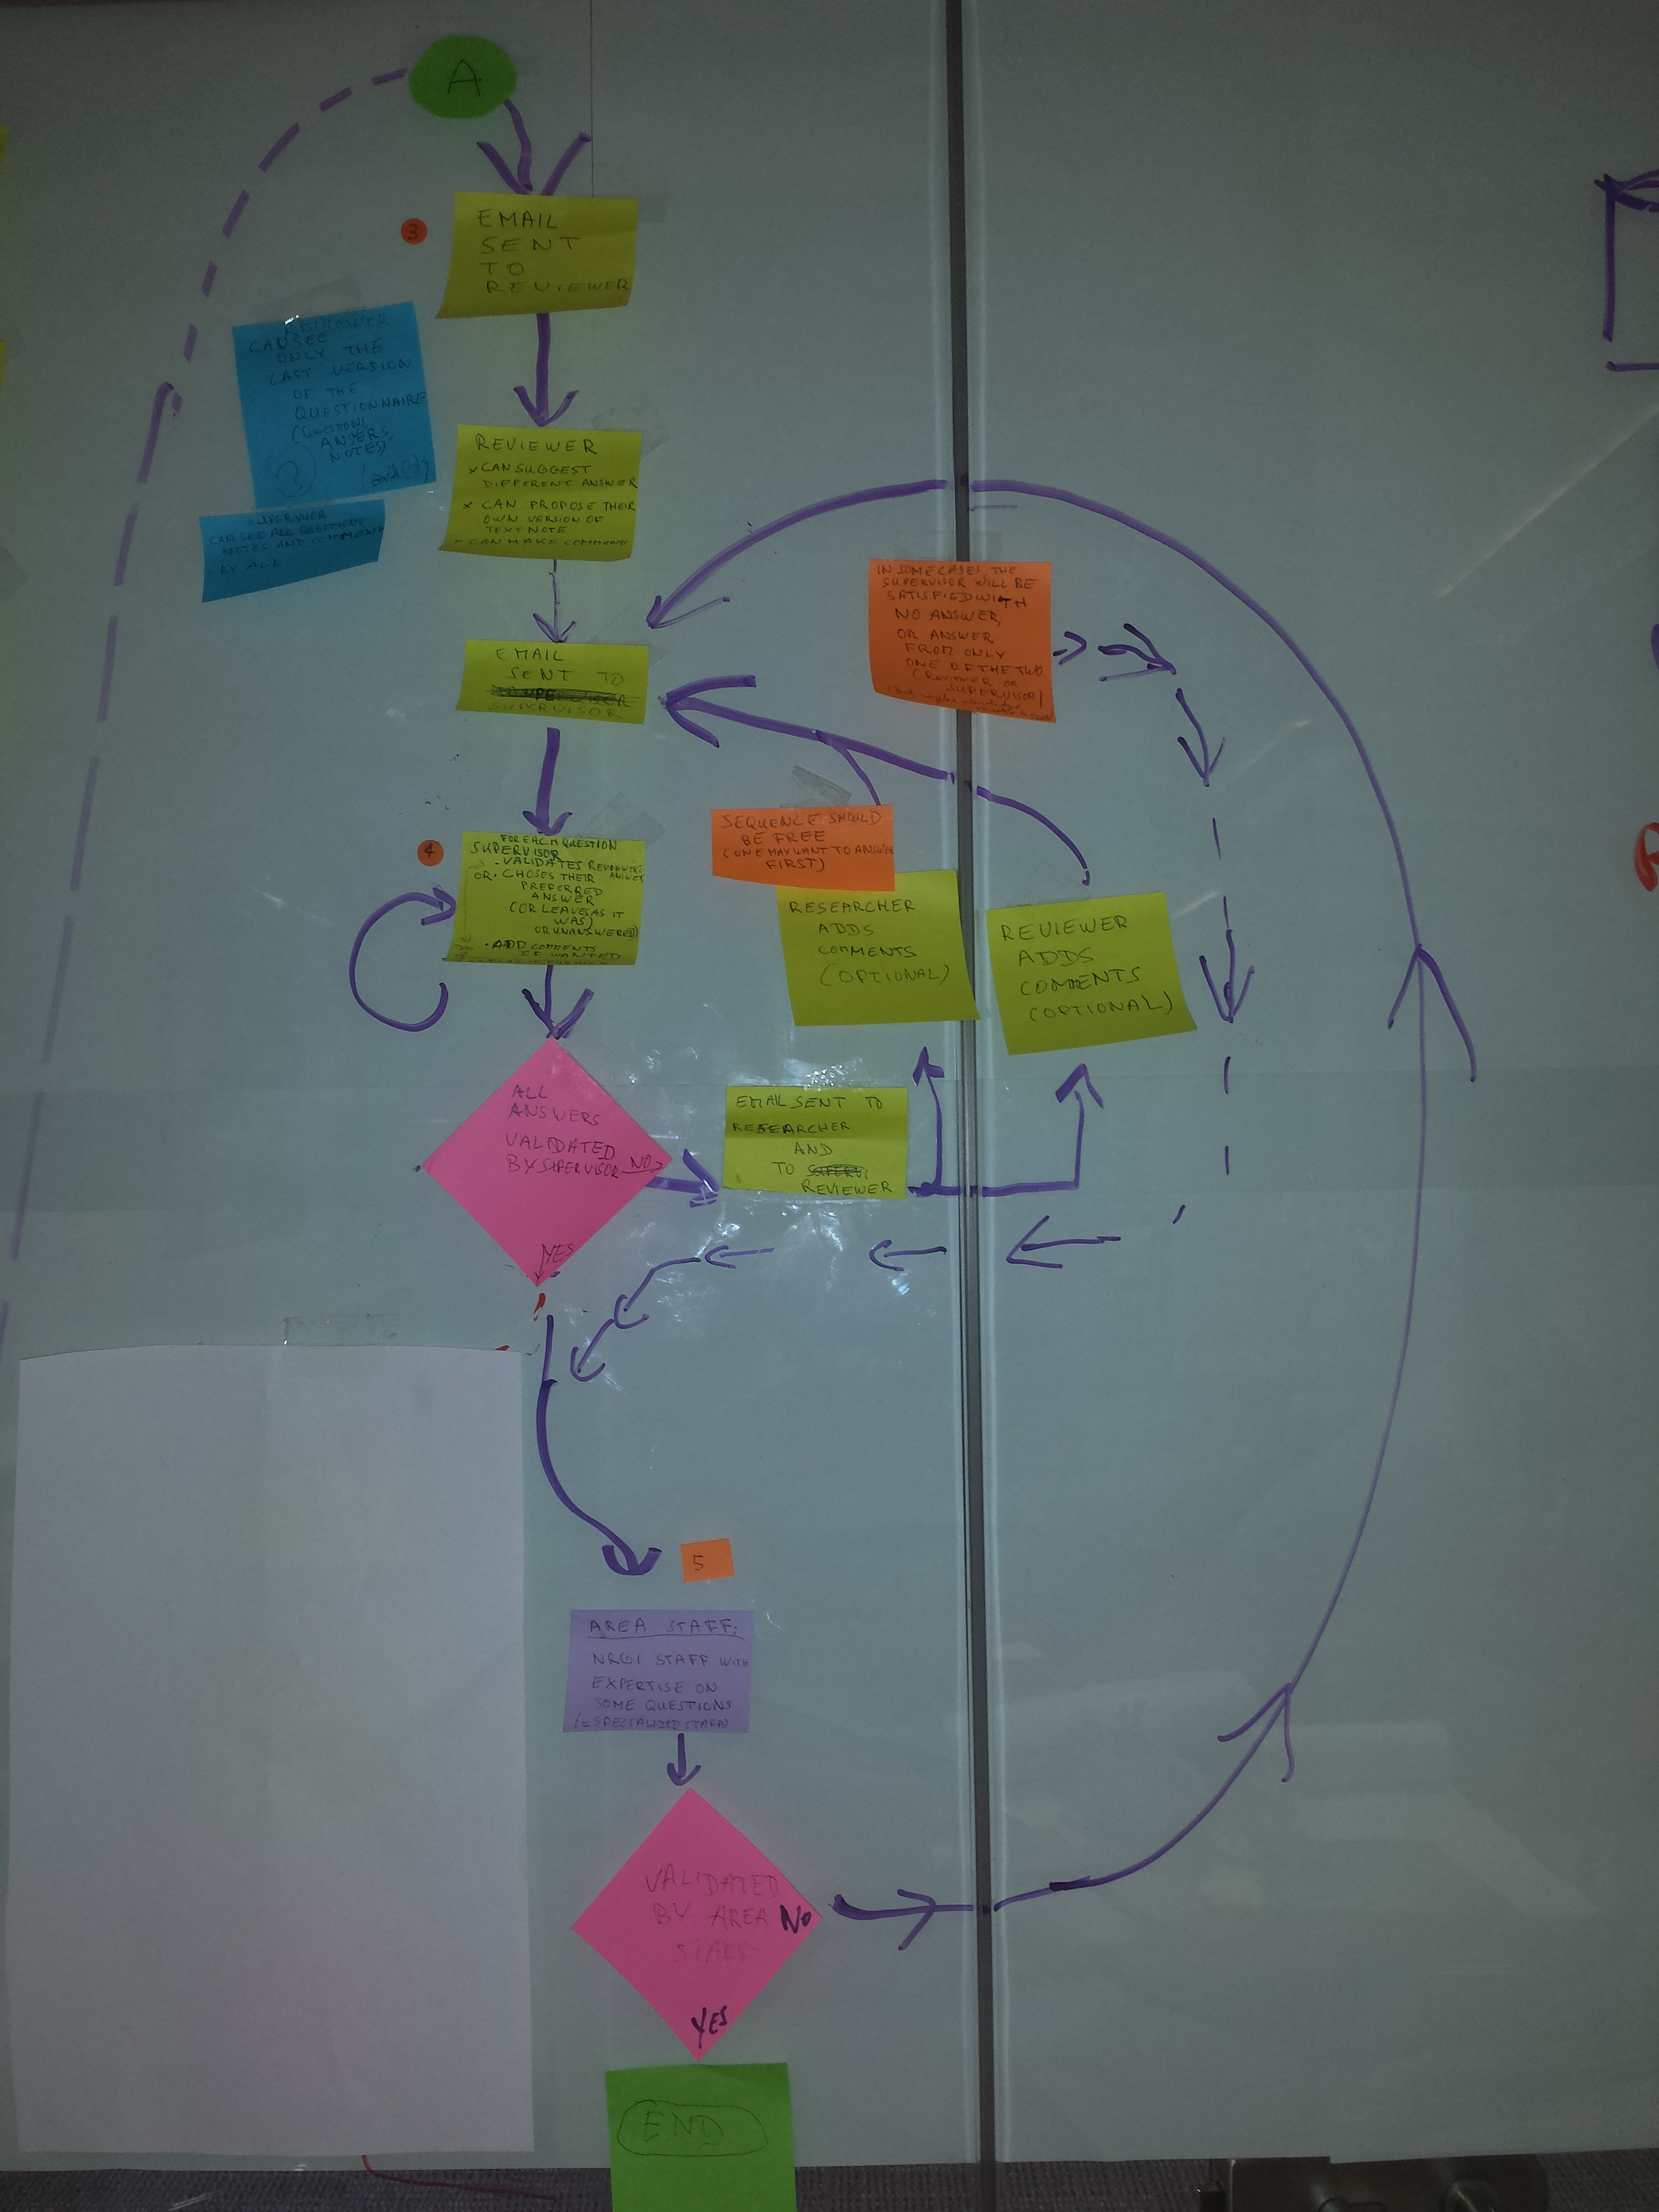 A
3
EMAIL
SENT
TO
REVIEWER
REVIEWER
CAN SEE
ONLY THE
LAST VERSION
OF THE
QUESTIONNAIRE
(QUESTIONS,
ANSERS,
NOTES)
?
SUPERVISOR
CAN SEE ALL QUESTIONS
NOTES AND COMMENT
BY ALL
REVIEWER
x CAN SUGGEST
DIFFERENT ANSWER
x CAN PROPOSE THEIR
OWN VERSION OF
TEXT NOTE
- CAN MAKE COMMENT
EMAIL
SENT TO
SUPERVISOR
IN SOME CASES, THE
SUPERVISOR WILL BE
SATISFIED WITH
NO ANSWER,
OR ANSWER
FROM ONLY
ONE OF THE TWO
(REVIEWER OR
SUPERVISOR)
4
FOR EACH QUESTION
SUPERVISOR
. VALIDATES REVIEWER'S
OR. CHOSES THEIR ANSWER
PREFERRED
ANSWER
(OR LEAVES AS IT
WAS)
OR UNANSWERED)
. ADD COMMENTS
IF WANTED
SEQUENCE SHOULD
BE FREE
(ONE MAY WANT TO ANSWER
FIRST)
RESEARCHER
ADDS
COMMENTS
(OPTIONAL)
REVIEWER
ADDS
COMMENTS
(OPTIONAL)
ALL
ANSWERS
VALIDATED
BY SUPERVISOR NO
YES
EMAIL SENT TO
RESEARCHER
AND
TO
REVIEWER
5
AREA STAFF:
NRGI STAFF WITH
EXPERTISE ON
SOME QUESTIONS
(= SPECIALIZED STAFF)
VALIDATED
BY AREA NO
STAFF
YES
END